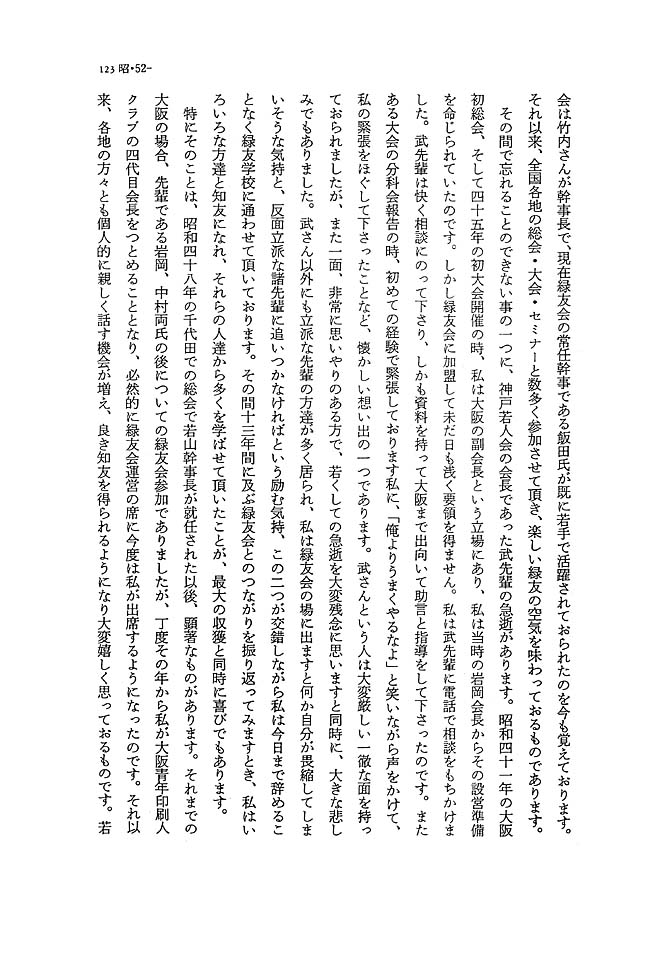 123 昭・52-
会は竹内さんが幹事長で、現在緑友会の常任幹事である飯田氏が既に若手で活躍されておられたのを今も覚えております。
それ以来、全国各地の総会・大会・セミナーと数多く参加させて頂き、楽しい緑友の空気を味わっておるものであります。
その間で忘れることのできない事の一つに、神戸若人会の会長であった武先輩の急逝があります。昭和四十一年の大阪
初総会、そして四十五年の初大会開催の時、私は大阪の副会長という立場にあり、私は当時の岩岡会長からその設営準備
を命じられていたのです。しかし緑友会に加盟して未だ日も浅く要領を得ません。私は武先輩に電話で相談をもちかけま
した。武先輩は快く相談にのって下さり、しかも資料を持って大阪まで出向いて助言と指導をして下さったのです。また
ある大会の分科会報告の時、初めての経験で緊張しております私に、「俺よりうまくやるなよ」と笑いながら声をかけて、
私の緊張をほぐして下さったことなど、懐かしい想い出の一つであります。武さんという人は大変厳しい一徹な面を持っ
ておられましたが、また一面、非常に思いやりのある方で、若くしての急逝を大変残念に思いますと同時に、大きな悲し
みでもありました。武さん以外にも立派な先輩の方達が多く居られ、私は緑友会の場に出ますと何か自分が畏縮してしま
いそうな気持と、反面立派な諸先輩に追いつかなければという励む気持、この二つが交錯しながら私は今日まで辞めるこ
となく緑友学校に通わせて頂いております。その間十三年間に及ぶ緑友会とのつながりを振り返ってみますとき、私はい
ろいろな方達と知友になれ、それらの人達から多くを学ばせて頂いたことが、最大の収獲と同時に喜びでもあります。
特にそのことは、昭和四十八年の千代田での総会で若山幹事長が就任された以後、顕著なものがあります。それまでの
大阪の場合、先輩である岩岡、中村両氏の後についての緑友会参加でありましたが、丁度その年から私が大阪青年印刷人
クラブの四代目会長をつとめることとなり、必然的に緑友会運営の席に今度は私が出席するようになったのです。それ以
来、各地の方々とも個人的に親しく話す機会が増え、良き知友を得られるようになり大変嬉しく思っておるものです。若